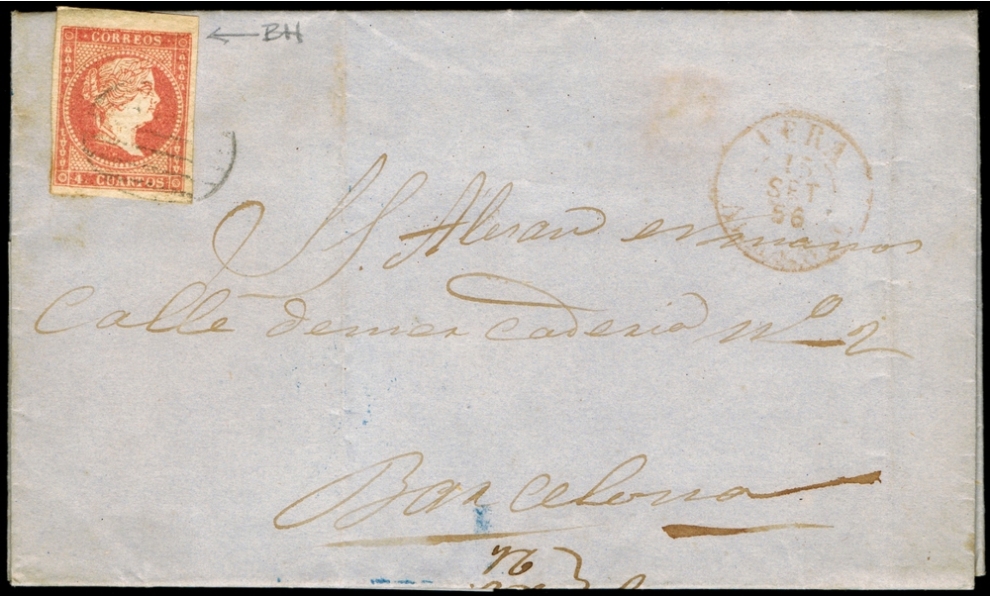 CORREOS
4. CUARTOS
BH
VERA
15
SET
56
S. S. Alesan ermanos
Calle demercaderia nº 2
Barcelona